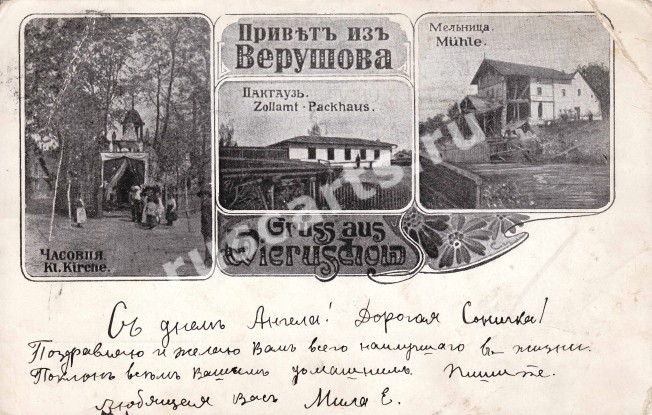 Привѣтъ изъ
Верушова
Мельница.
Mühle.
Пакгаузъ.
Zollamt-Packhaus.
Часовня.
Kl. Kirche.
Gruss aus
Wieruschow
rusoarts.ru
Съ днемъ Ангела! Дорогая Соничка!
Поздравляю и желаю Вамъ всего наилучшаго въ жизни.
Поклонъ всѣмъ Вашимъ домашнимъ. Пишите.
Любящая Васъ Мила Е.